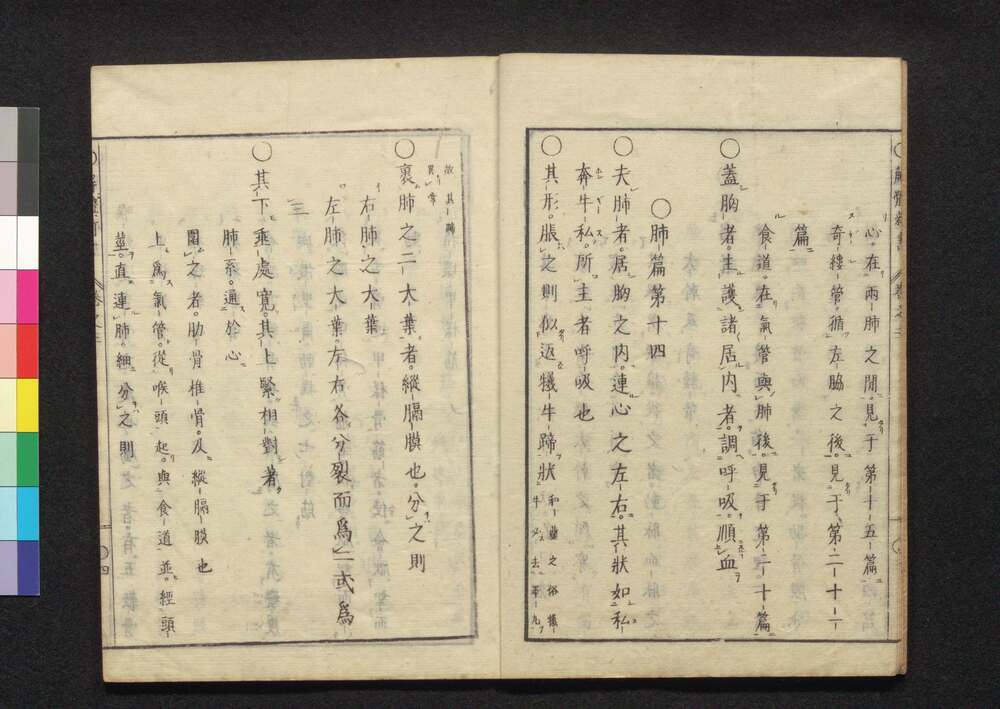 心在兩肺之間見于第十五篇
奇縷管循左脇之後見于第二十二
篇
食道在氣管與肺後見于第二十篇
○蓋胸者主護諸居内者調呼吸順血
○肺篇第十四
○夫肺者居胸之内連心之左右其狀如私
奔牛私所主者呼吸也
○其形脹之則似返犠牛蹄狀
和蘭之俗
牛必去睪丸
故其蹄
異常
○裹肺之二大葉者縱膈膜也分之則
右肺之大葉
左肺之大葉左右各分裂而爲二或爲
三
○其下垂處寛其上緊相對著
肺系通於心
圍之者肋骨椎骨及縱膈膜也
上爲氣管從喉頭起與食道並經頭
莖直連肺細分之則
四